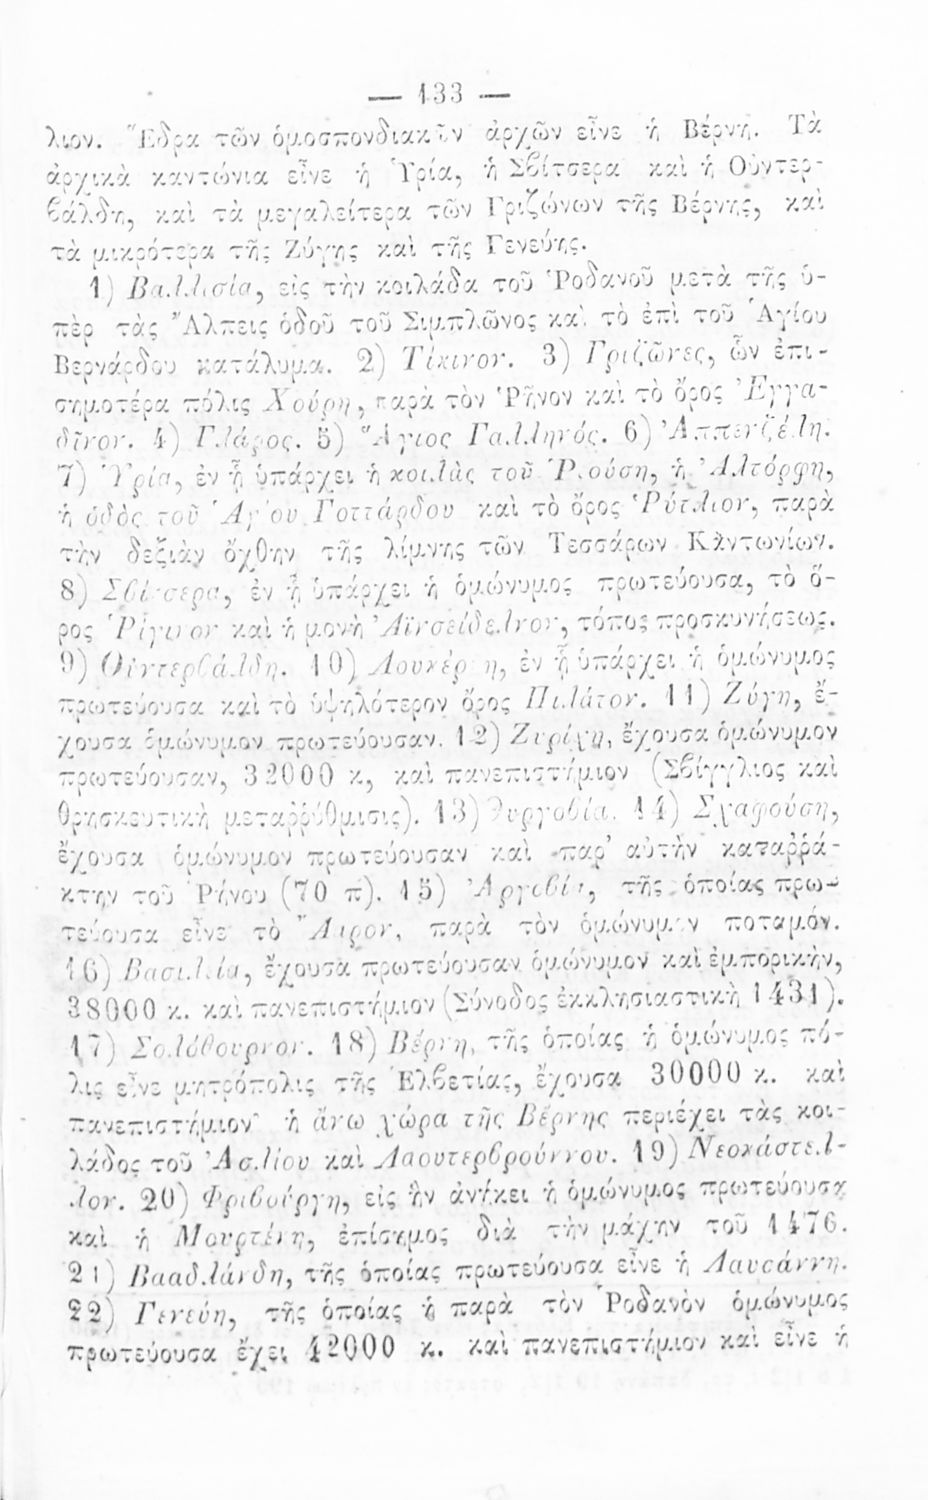 — 133 —
λιον. Ἕδρα τῶν ὁμοσπονδιακῶν ἀρχῶν εἶνε ἡ Βέρνη. Τὰ
ἀρχικὰ καντώνια εἶνε ἡ Ὑρία, ἡ Σβίτσερα καὶ ἡ Οὐντερ-
βάλδη, καὶ τὰ μεγαλείτερα τῶν Γριζώνων τῆς Βέρνης, καὶ
τὰ μικρότερα τῆς Ζύγης καὶ τῆς Γενεύης.
1) Βαλλισία, εἰς τὴν κοιλάδα τοῦ Ῥοδανοῦ μετὰ τῆς ὑ-
πὲρ τὰς Ἄλπεις ὁδοῦ τοῦ Σιμπλῶνος καὶ τὸ ἐπὶ τοῦ Ἁγίου
Βερνάρδου κατάλυμα. 2) Τίκινον. 3) Γριζῶνες, ὧν ἐπι-
σημοτέρα πόλις Χούρη, παρὰ τὸν Ῥῆνον καὶ τὸ ὄρος Ἐγγα-
δῖνον. 4) Γλάρος. 5) Ἅγιος Γαλληνός. 6) Ἀππενζέλη.
7) Ὑρία, ἐν ᾗ ὑπάρχει ἡ κοιλὰς τοῦ Ῥούση, ἡ Ἀλτόρφη,
ἡ ὁδὸς τοῦ Ἁγίου Γοττάρδου καὶ τὸ ὄρος Ῥύτλιον, παρὰ
τὴν δεξιὰν ὄχθην τῆς λίμνης τῶν Τεσσάρων Καντωνίων.
8) Σβίτσερα, ἐν ᾗ ὑπάρχει ἡ ὁμώνυμος πρωτεύουσα, τὸ ὄ-
ρος Ῥίγινον καὶ ἡ μονὴ Ἀϊνσείδελνον, τόπος προσκυνήσεως.
9) Οὐντερβάλδη. 10) Λουκέρνη, ἐν ᾗ ὑπάρχει ἡ ὁμώνυμος
πρωτεύουσα καὶ τὸ ὑψηλότερον ὄρος Πιλάτον. 11) Ζύγη, ἔ-
χουσα ὁμώνυμον πρωτεύουσαν. 12) Ζυρίχη, ἔχουσα ὁμώνυμον
πρωτεύουσαν, 32000 κ, καὶ πανεπιστήμιον (Σβίγγλιος καὶ
θρησκευτικὴ μεταῤῥύθμισις). 13) Θυργοβία. 14) Σχαφούση,
ἔχουσα ὁμώνυμον πρωτεύουσαν καὶ παρ’ αὐτὴν καταῤῥά-
κτην τοῦ Ῥήνου (70 π). 15) Ἀργοβία, τῆς ὁποίας πρω-
τεύουσα εἶνε τὸ Ἄαρον, παρὰ τὸν ὁμώνυμον ποταμόν.
16) Βασιλεία, ἔχουσα πρωτεύουσαν ὁμώνυμον καὶ ἐμπορικὴν,
38000 κ. καὶ πανεπιστήμιον (Σύνοδος ἐκκλησιαστικὴ 1431).
17) Σολόθουρνον. 18) Βέρνη, τῆς ὁποίας ἡ ὁμώνυμος πό-
λις εἶνε μητρόπολις τῆς Ἑλβετίας, ἔχουσα 30000 κ. καὶ
πανεπιστήμιον· ἡ ἄνω χώρα τῆς Βέρνης περιέχει τὰς κοι-
λάδος τοῦ Ἀσλίου καὶ Λαουτερβρούννου. 19) Νεοκάστελ-
λον. 20) Φριβούργη, εἰς ἣν ἀνήκει ἡ ὁμώνυμος πρωτεύουσα
καὶ ἡ Μουρτένη, ἐπίσημος διὰ τὴν μάχην τοῦ 1476.
21) Βααδλάνδη, τῆς ὁποίας πρωτεύουσα εἶνε ἡ Λαυσάννη.
22) Γενεύη, τῆς ὁποίας ἡ παρὰ τὸν Ῥοδανὸν ὁμώνυμος
πρωτεύουσα ἔχει 42000 κ. καὶ πανεπιστήμιον καὶ εἶνε ἡ